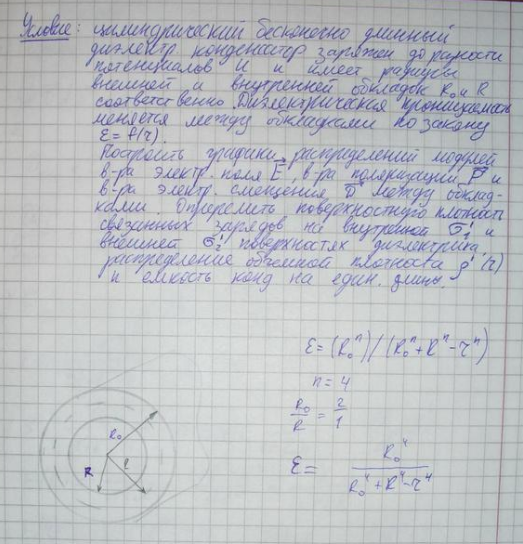 Условие: цилиндрический бесконечно длинный
диэлектр. конденсатор заряжен до разности
потенциалов U и имеет радиусы
внешней и внутренней обкладок R₀ и R
соответственно. Диэлектрическая проницаемость
меняется между обкладками по закону
ε = f(r).
Построить графики распределений модулей
в-ра электр. поля E, в-ра поляризации P и
в-ра электр. смещения D между обклад-
ками. Определить поверхностную плотность
связанных зарядов на внутренней σ₁' и
внешней σ₂' поверхностях диэлектрика,
распределение объемной плотности ρ'(r)
и емкость конд на един. длины.
ε = (R₀ⁿ)/(R₀ⁿ+Rⁿ-rⁿ)
n = 4
R₀/R = 2/1
ε = R₀⁴/(R₀⁴+R⁴-r⁴)
R₀
R
r